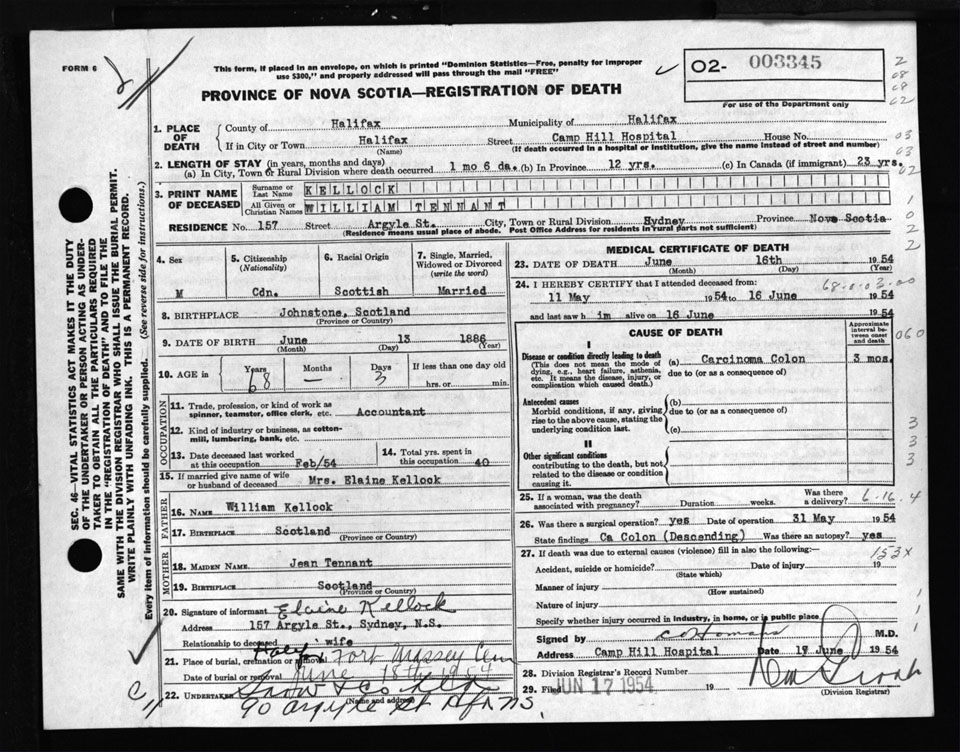 FORM 6
This form, if placed in an envelope, on which is printed "Dominion Statistics—Free, penalty for improper
use $300," and properly addressed will pass through the mail "FREE"
PROVINCE OF NOVA SCOTIA—REGISTRATION OF DEATH
O2- 003345
For use of the Department only
2
08
08
02
1. PLACE OF DEATH
County of Halifax Municipality of Halifax
If in City or Town Halifax Street Camp Hill Hospital House No. 03
(Name) (If death occurred in a hospital or institution, give the name instead of street and number)
03
2. LENGTH OF STAY (in years, months and days)
(a) In City, Town or Rural Division where death occurred 1 mo 6 da. (b) In Province 12 yrs. (c) In Canada (if immigrant) 23 yrs.
3. PRINT NAME OF DECEASED
Surname or Last Name KELLOCK
All Given or Christian Names WILLIAM TENNANT
RESIDENCE No. 157 Street Argyle St. City, Town or Rural Division Hydney Province Nova Scotia
(Residence means usual place of abode. Post Office Address for residents in rural parts not sufficient)
4. Sex
M
5. Citizenship
(Nationality)
Cdn.
6. Racial Origin
Scottish
7. Single, Married, Widowed or Divorced
(write the word)
Married
8. BIRTHPLACE Johnstone, Scotland
(Province or Country)
9. DATE OF BIRTH June 13 1886
(Month) (Day) (Year)
10. AGE in
Years Months Days If less than one day old
68 — 3 hrs. or min.
OCCUPATION
11. Trade, profession, or kind of work as
spinner, teamster, office clerk, etc. Accountant
12. Kind of industry or business, as cotton-
mill, lumbering, bank, etc.
13. Date deceased last worked
at this occupation Feb/54
14. Total yrs. spent in
this occupation 40
15. If married give name of wife
or husband of deceased Mrs. Elaine Kellock
FATHER
16. NAME William Kellock
17. BIRTHPLACE Scotland
(Province or Country)
MOTHER
18. MAIDEN NAME Jean Tennant
19. BIRTHPLACE Scotland
(Province or Country)
20. Signature of informant Elaine Kellock
Address 157 Argyle St., Sydney, N.S.
Relationship to deceased wife
21. Place of burial, cremation or removal Fort Massey Cem
Date of burial or removal June 18th 1954
22. UNDERTAKER Snow & Co
(Name and address)
90 Argyle St Hfx NS.
MEDICAL CERTIFICATE OF DEATH
23. DATE OF DEATH June 16th 1954
(Month) (Day) (Year)
24. I HEREBY CERTIFY that I attended deceased from:
68-0-03-00
11 May 1954 to 16 June 1954
and last saw h im alive on 16 June 1954
CAUSE OF DEATH
Approximate interval between onset and death
060
I
Disease or condition directly leading to death
(This does not mean the mode of dying, e.g., heart failure, asthenia, etc. It means the disease, injury, or complication which caused death.)
(a) Carcinoma Colon 3 mos.
due to (or as a consequence of)
Antecedent causes
Morbid conditions, if any, giving rise to the above cause, stating the underlying condition last.
(b)
due to (or as a consequence of)
(c)
II
Other significant conditions
contributing to the death, but not related to the disease or condition causing it.
3
3
3
25. If a woman, was the death
associated with pregnancy? Duration weeks. Was there a delivery?
6-16-4
26. Was there a surgical operation? yes Date of operation 31 May 1954
State findings Ca Colon (Descending) Was there an autopsy? yes
27. If death was due to external causes (violence) fill in also the following:—
153X
Accident, suicide or homicide? Date of injury 19
(State which)
Manner of injury
(How sustained)
Nature of injury
Specify whether injury occurred in industry, in home, or in public place
Signed by M.D.
Address Camp Hill Hospital Date 17 June 1954
28. Division Registrar's Record Number
29. Filed JUN 17 1954 19
(Division Registrar)
SEC. 46—VITAL STATISTICS ACT MAKES IT THE DUTY
OF THE UNDERTAKER OR PERSON ACTING AS UNDER-
TAKER TO OBTAIN ALL THE PARTICULARS REQUIRED
IN THE "REGISTRATION OF DEATH" AND TO FILE THE
SAME WITH THE DIVISION REGISTRAR WHO SHALL ISSUE THE BURIAL PERMIT.
WRITE PLAINLY WITH UNFADING INK. THIS IS A PERMANENT RECORD.
Every item of information should be carefully supplied. (See reverse side for instructions.)